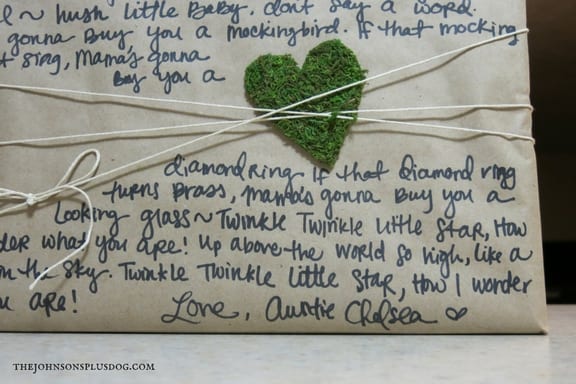 l ~ hush little Baby, don't say a word.
gonna Buy you a mockingbird. If that mocking
t sing, Mama's gonna
Buy you a
diamond ring If that Diamond ring
turns Brass, mama's gonna Buy you a
Looking glass ~ Twinkle Twinkle little Star, How
der what you are! Up above the world so high, like a
n the sky. Twinkle Twinkle Little Star, How I wonder
u are!
Love, Auntie Chelsea ♡
THEJOHNSONSPLUSDOG.COM